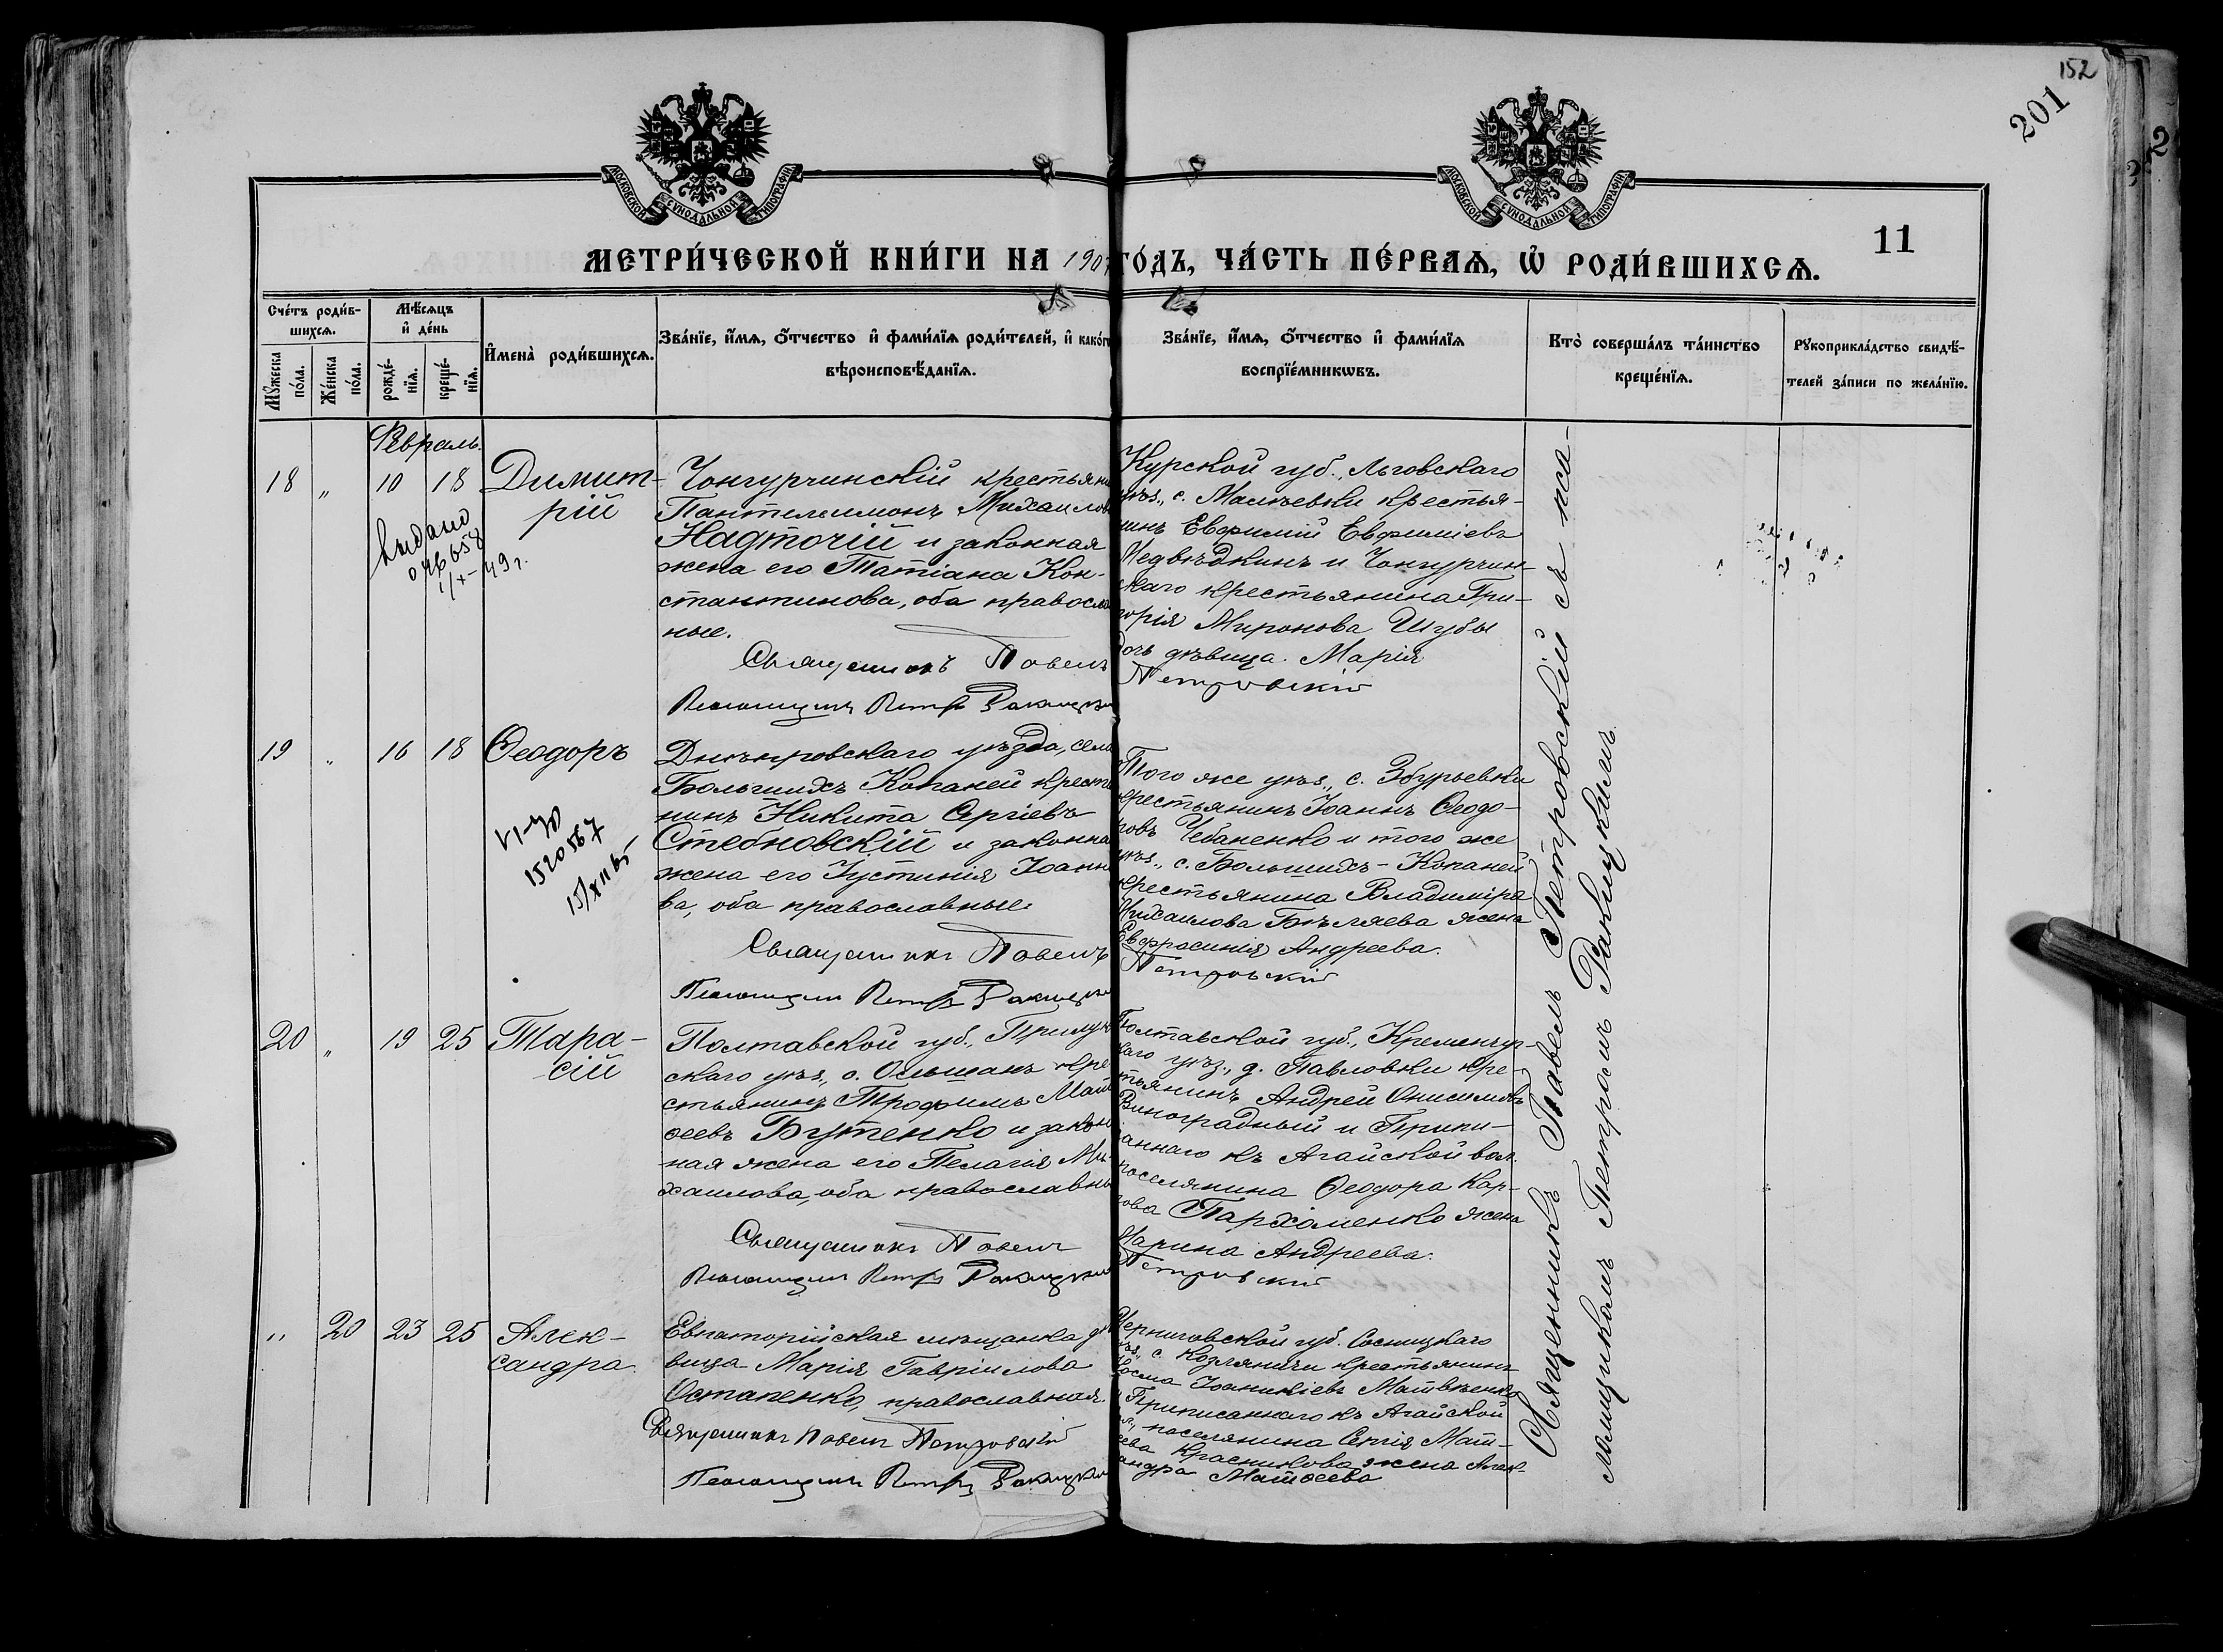 152
201
11
МОСКОВСКОЙ СѴНОДАЛЬНОЙ ТИПОГРАФІИ
МОСКОВСКОЙ СѴНОДАЛЬНОЙ ТИПОГРАФІИ
МЕТРИ́ЧЕСКОЙ КНИ́ГИ НА 190 ГО́ДЪ, ЧА́СТЬ ПЕ́РВАѦ, Ѡ҆ РОДИ́ВШИХСѦ.
Сче́тъ роди́в-
шихсѧ.
Мѹ́жеска
по́ла.
Же́нска
по́ла.
Мѣ́сѧцъ
и҆ де́нь
рожде́-
нїѧ.
креще́-
нїѧ.
И҆мена̀ роди́вшихсѧ.
Зва́нїе, и҆́мѧ, ѻ҆́тчество и҆ фами́лїѧ роди́телей, и҆ како́гѡ
вѣроисповѣ́данїѧ.
Зва́нїе, и҆́мѧ, ѻ҆́тчество и҆ фами́лїѧ
воспрїе́мникѡвъ.
Кто̀ соверша́лъ та́инство
креще́нїѧ.
Рѹкоприкла́дство свидѣ́-
телей за́писи по жела́нїю.
Февраль.
18 „ 10 18 Димит-
рій
выдано
046658
49 г.
Чонгурчинскій крестьяни
Пантелеимонъ Михаилов
Надточій и законная
жена его Татіана Кон-
стантинова, оба правосла
ные.
Священникъ Павелъ
Псаломщикъ Петръ Ракицкій
Курской губ., Льговскаго
уѣз., с. крестья-
нинъ Евфимій Евфиміевъ
Медвѣдкинъ и Чонгурчин-
скаго крестьянина Гри-
горія Миронова Шубы
дочь дѣвица Марія
Петровскій
19 „ 16 18 Ѳеодоръ
1520567
15/XII 65
Днѣпровскаго уѣзда, села
Большихъ Копаней кресть
нинъ Никита Сергіевъ
Стебновскій и законна
жена его Іустинія Іоанн
ва, оба православные.
Священникъ Павелъ
Псаломщикъ Петръ Ракицкій
Того же уѣз., с. Збурьевки
крестьянинъ Іоаннъ Ѳеодо-
ровъ Чебаненко и того же
уѣз., с. Большихъ-Копаней
крестьянина Владиміра
Михаилова Бѣляева жена
Евфросинія Андреева.
Петровскій
20 „ 19 25 Тара-
сій
Полтавской губ., Прилук
скаго уѣз., с. Ольшанъ кре
стьянинъ Трофимъ Мат
ѳеевъ Бутенко и закон
ная жена его Пелагія Ми-
хаилова, оба православны
Священникъ Павелъ
Псаломщикъ Петръ Ракицкій
Полтавской губ., Кременчуг-
скаго уѣз., д. Павловки кре-
стьянинъ Андрей Онисимовъ
Виноградный и Припи-
саннаго къ Агайской вол.
поселянина Ѳеодора Кар-
пова Пархоменко жена
Марина Андреева.
Петровскій
„ 20 23 25 Алек-
сандра
Евпаторійская мѣщанка дѣ
вица Марія Гавріилова
Остапенко, православная.
Священникъ Павелъ Петровскій
Псаломщикъ Петръ Ракицкій
Черниговской губ. Сосницкаго
уѣз., с. Козляничи крестьянинъ
Косма Іоанникіевъ Матвѣенко
и Приписаннаго къ Агайской
вол., поселянина Сергія Мат-
ѳеева Красникова жена Алек-
сандра Матѳеева
Священникъ Павелъ Петровскій съ пса-
ломщикомъ Петромъ Ракицкимъ.